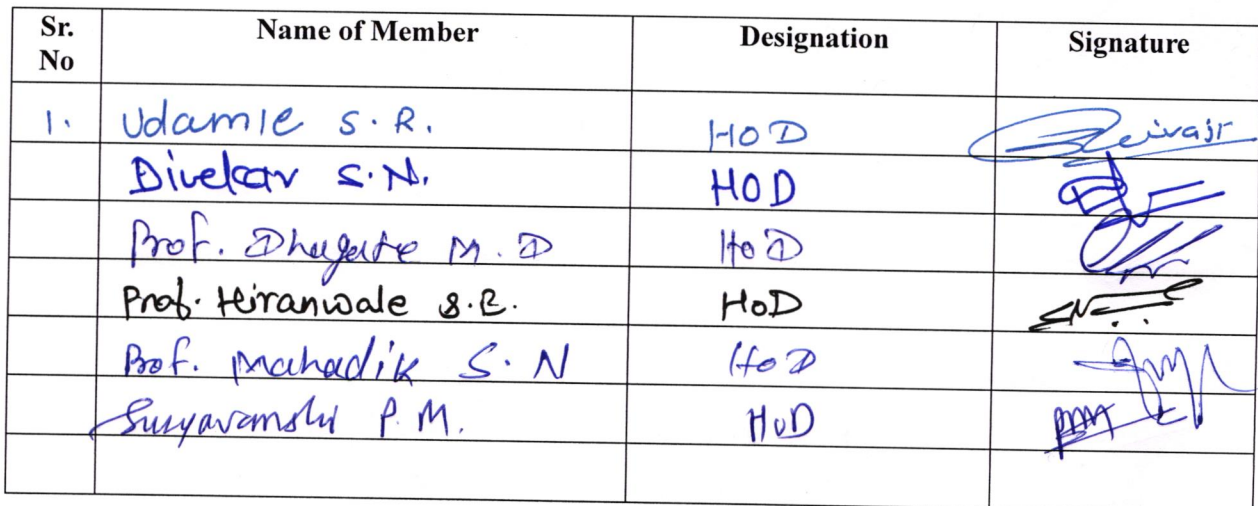 Sr. No Name of Member Designation Signature
1. Udamle S.R. HOD
Divekar S.N. HOD
Prof. Dhagate M.D HOD
Prof. Hiranwale S.R. HoD
Prof. Mahadik S.N HOD
Suryavanshi P.M. HOD